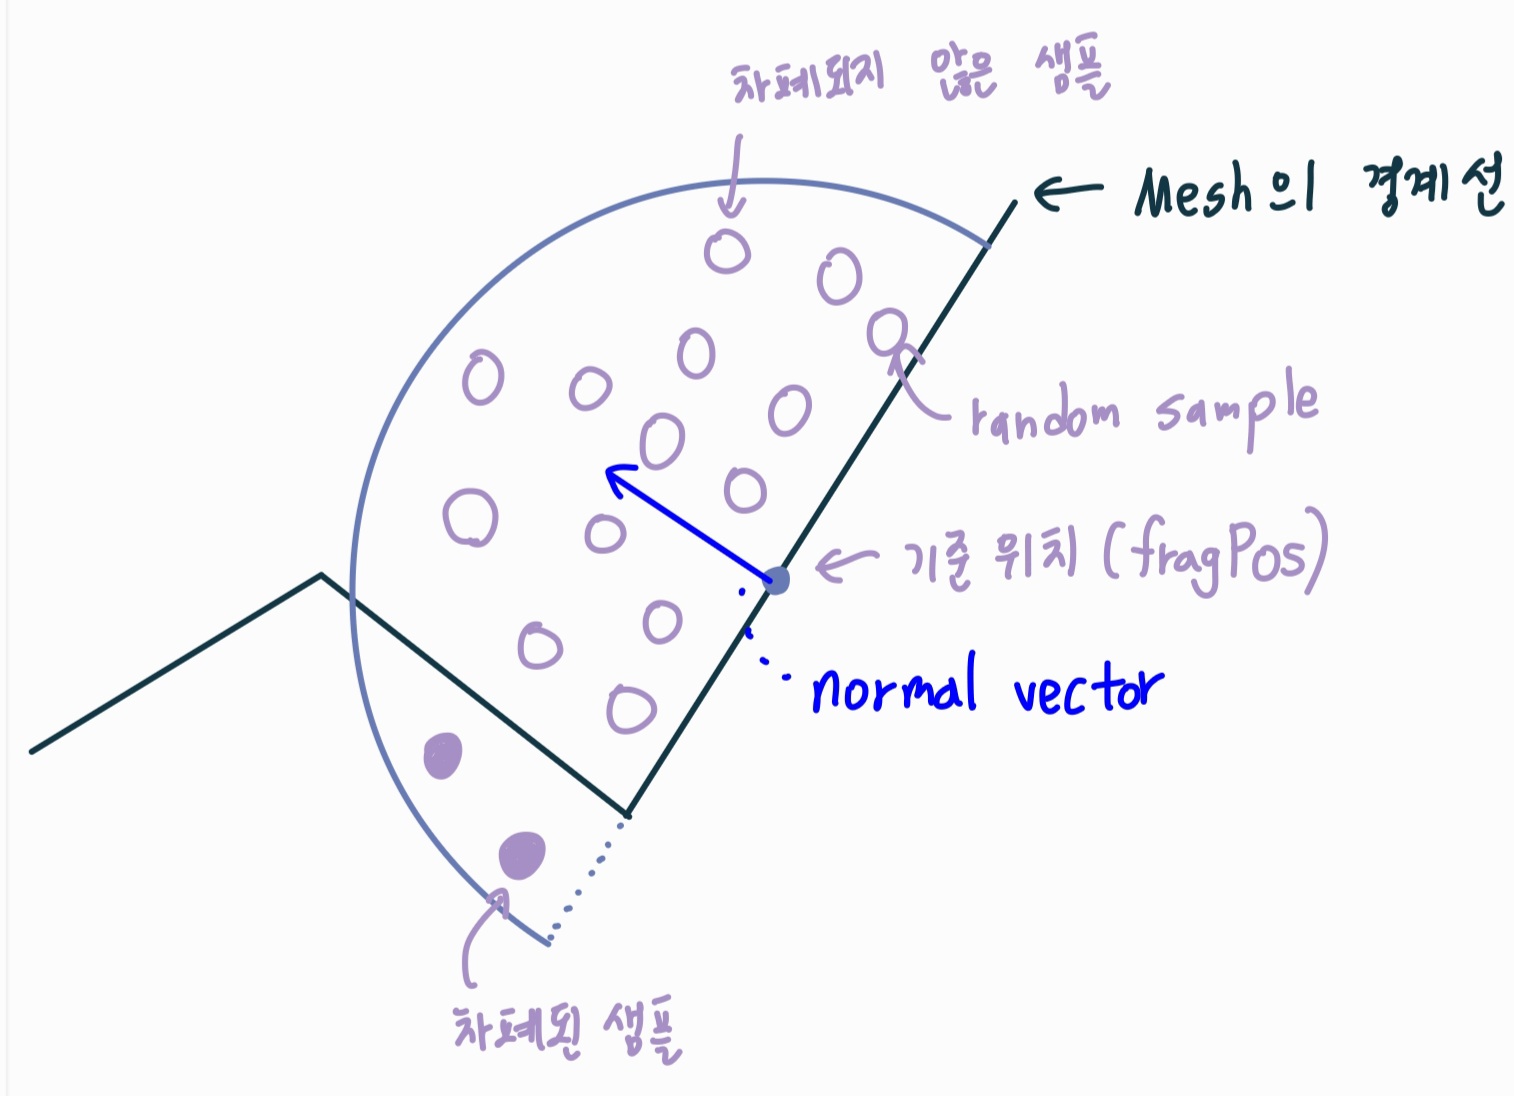 차폐되지 않은 샘플
Mesh의 경계선
random sample
기준 위치 (fragPos)
normal vector
차폐된 샘플